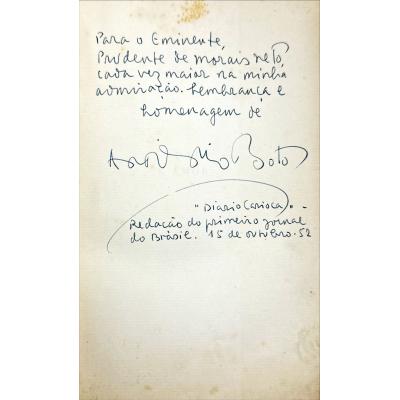 Para o Eminente,
Prudente de morais neto,
cada vez maior na minha
admiração. Lembrança e
homenagem de
António Boto
"Diario Carioca".
Redação do primeiro jornal
do Brásil. 15 de outubro. 52